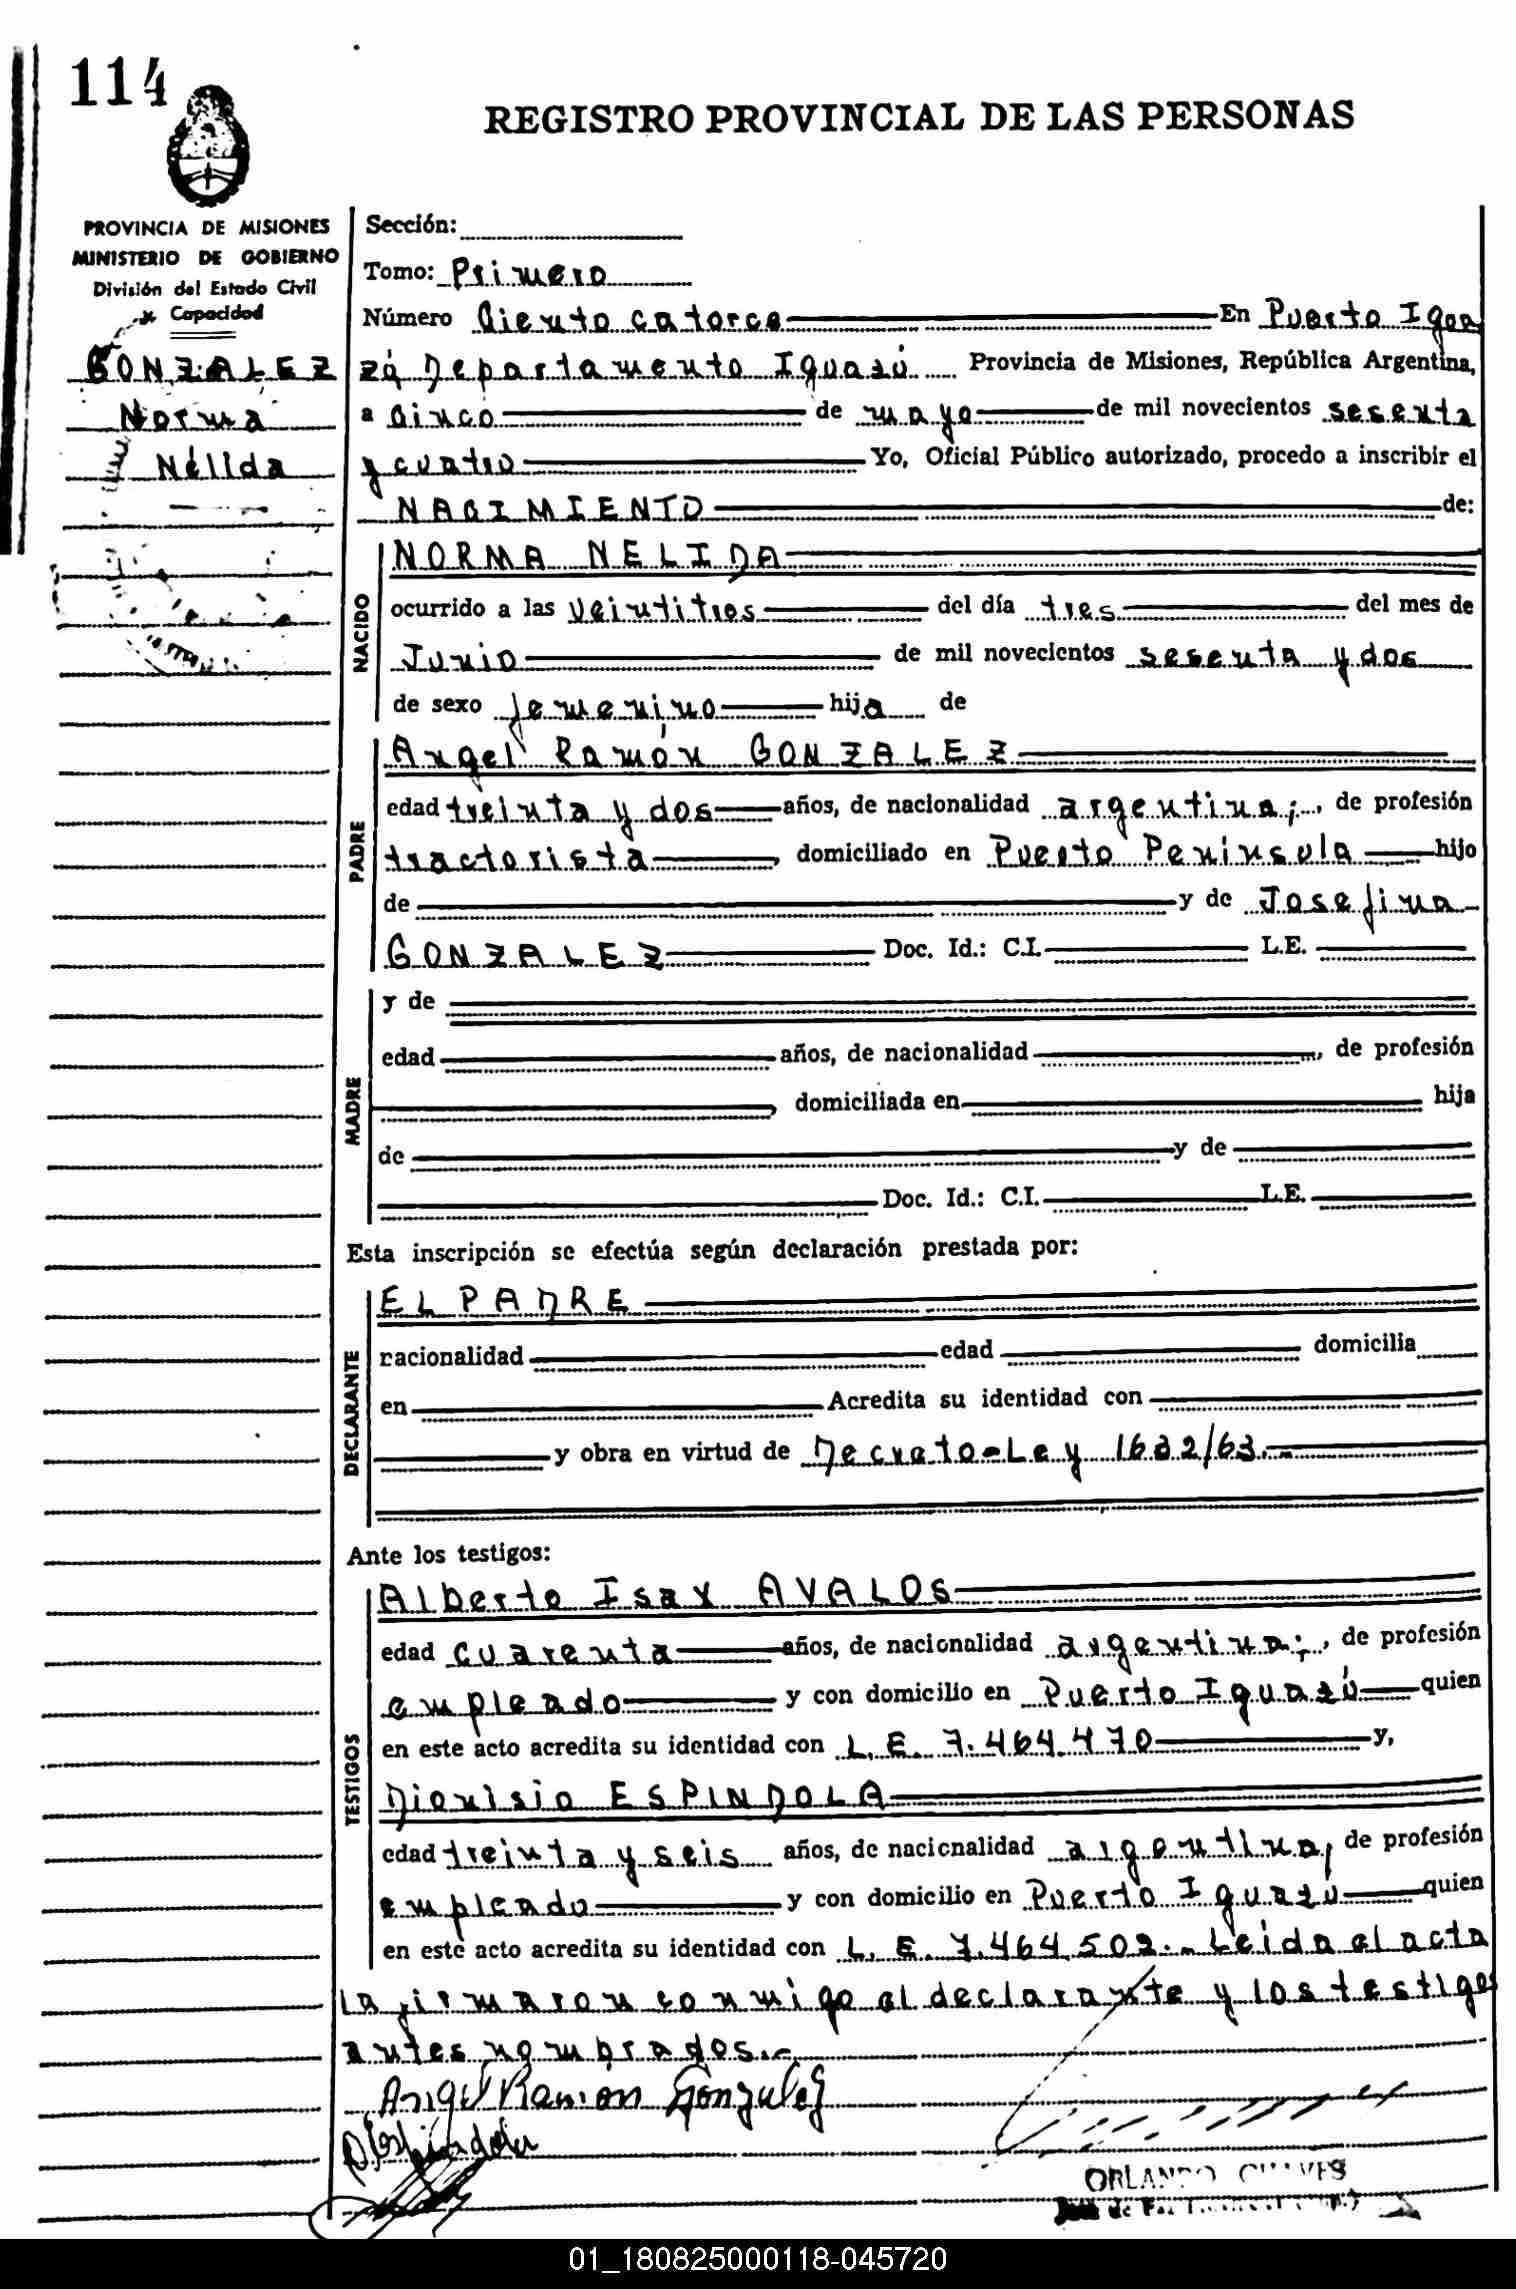 114
REGISTRO PROVINCIAL DE LAS PERSONAS
PROVINCIA DE MISIONES
MINISTERIO DE GOBIERNO
División del Estado Civil
y Capacidad
GONZALEZ
Norma
Nélida
Sección:
Tomo: Primero
Número Ciento catorce En Puerto Igua
zú Departamento Iguazú Provincia de Misiones, República Argentina,
a cinco de mayo de mil novecientos sesenta
y cuatro Yo, Oficial Público autorizado, procedo a inscribir el
NACIMIENTO de:
NACIDO
NORMA NELIDA
ocurrido a las veintitres del día tres del mes de
Junio de mil novecientos sesenta y dos
de sexo femenino hija de
PADRE
Angel Ramón GONZALEZ
edad treinta y dos años, de nacionalidad argentina;, de profesión
tractorista, domiciliado en Puerto Peninsula hijo
de y de Josefina
GONZALEZ Doc. Id.: C.I. L.E.
MADRE
y de
edad años, de nacionalidad , de profesión
, domiciliada en hija
de y de
Doc. Id.: C.I. L.E.
Esta inscripción se efectúa según declaración prestada por:
DECLARANTE
EL PADRE
nacionalidad edad domicilia
en Acredita su identidad con
y obra en virtud de Decreto-Ley 1632/63.-
Ante los testigos:
TESTIGOS
Alberto Isax AVALOS
edad cuarenta años, de nacionalidad argentina;, de profesión
empleado y con domicilio en Puerto Iguazú quien
en este acto acredita su identidad con L.E. 7.464.470 y,
Dionisio ESPINDOLA
edad treinta y seis años, de nacionalidad argentina, de profesión
empleado y con domicilio en Puerto Iguazú quien
en este acto acredita su identidad con L.E. 7.464.502.- Leida el acta
la firmaron conmigo el declarante y los testigos
antes nombrados.-
Angel Ramón Gonzalez
D Espindola
ORLANDO CHAVES
Juez de Paz
01_180825000118-045720